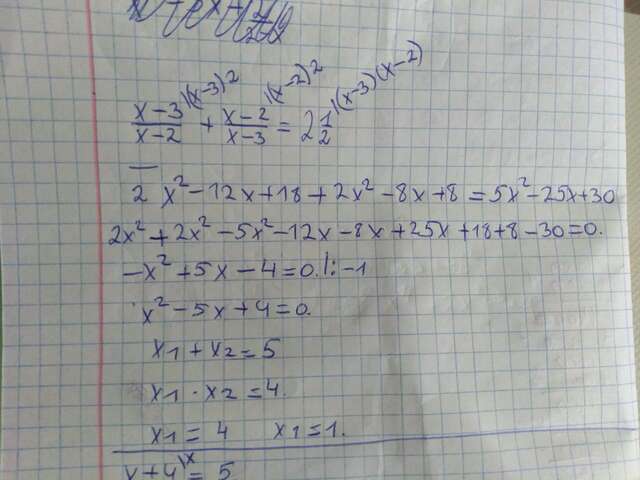 x-3/x-2 \(x-3)² + x-2/x-3 \(x-2)² = 2 1/2 \(x-3)(x-2)
2x²-12x+18+2x²-8x+8=5x²-25x+30
2x²+2x²-5x²-12x-8x+25x+18+8-30=0.
-x²+5x-4=0.|:-1
x²-5x+4=0.
x1+x2=5
x1·x2=4.
x1=4 x1=1.
x+4\x = 5